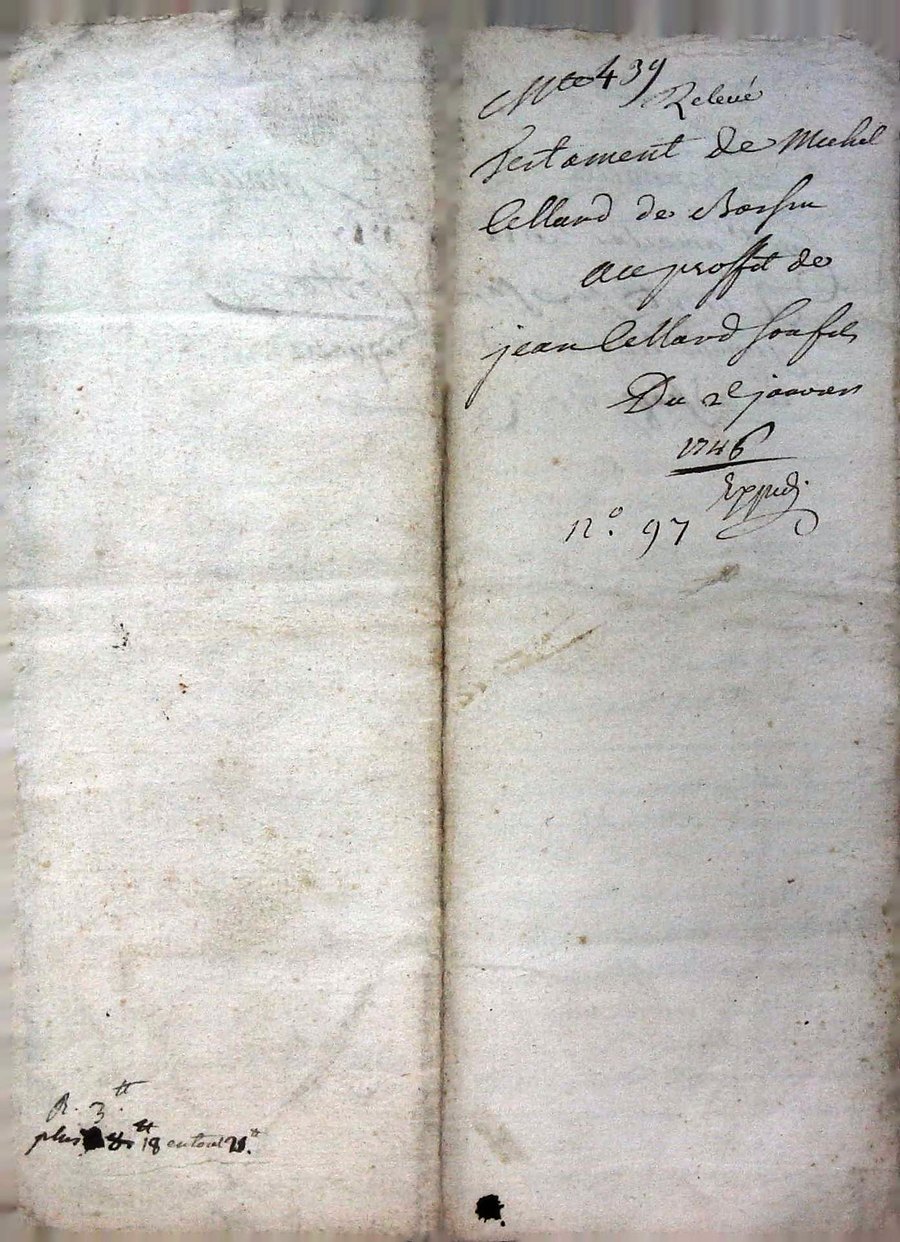 Mte 439
Relevé
Testament de Michel
Cellard de
au proffit de
jean Cellard son fils
Du 2e janvier
1746
Expedi
n°. 97
R. 3.tt
plus 18 en tout 21.tt